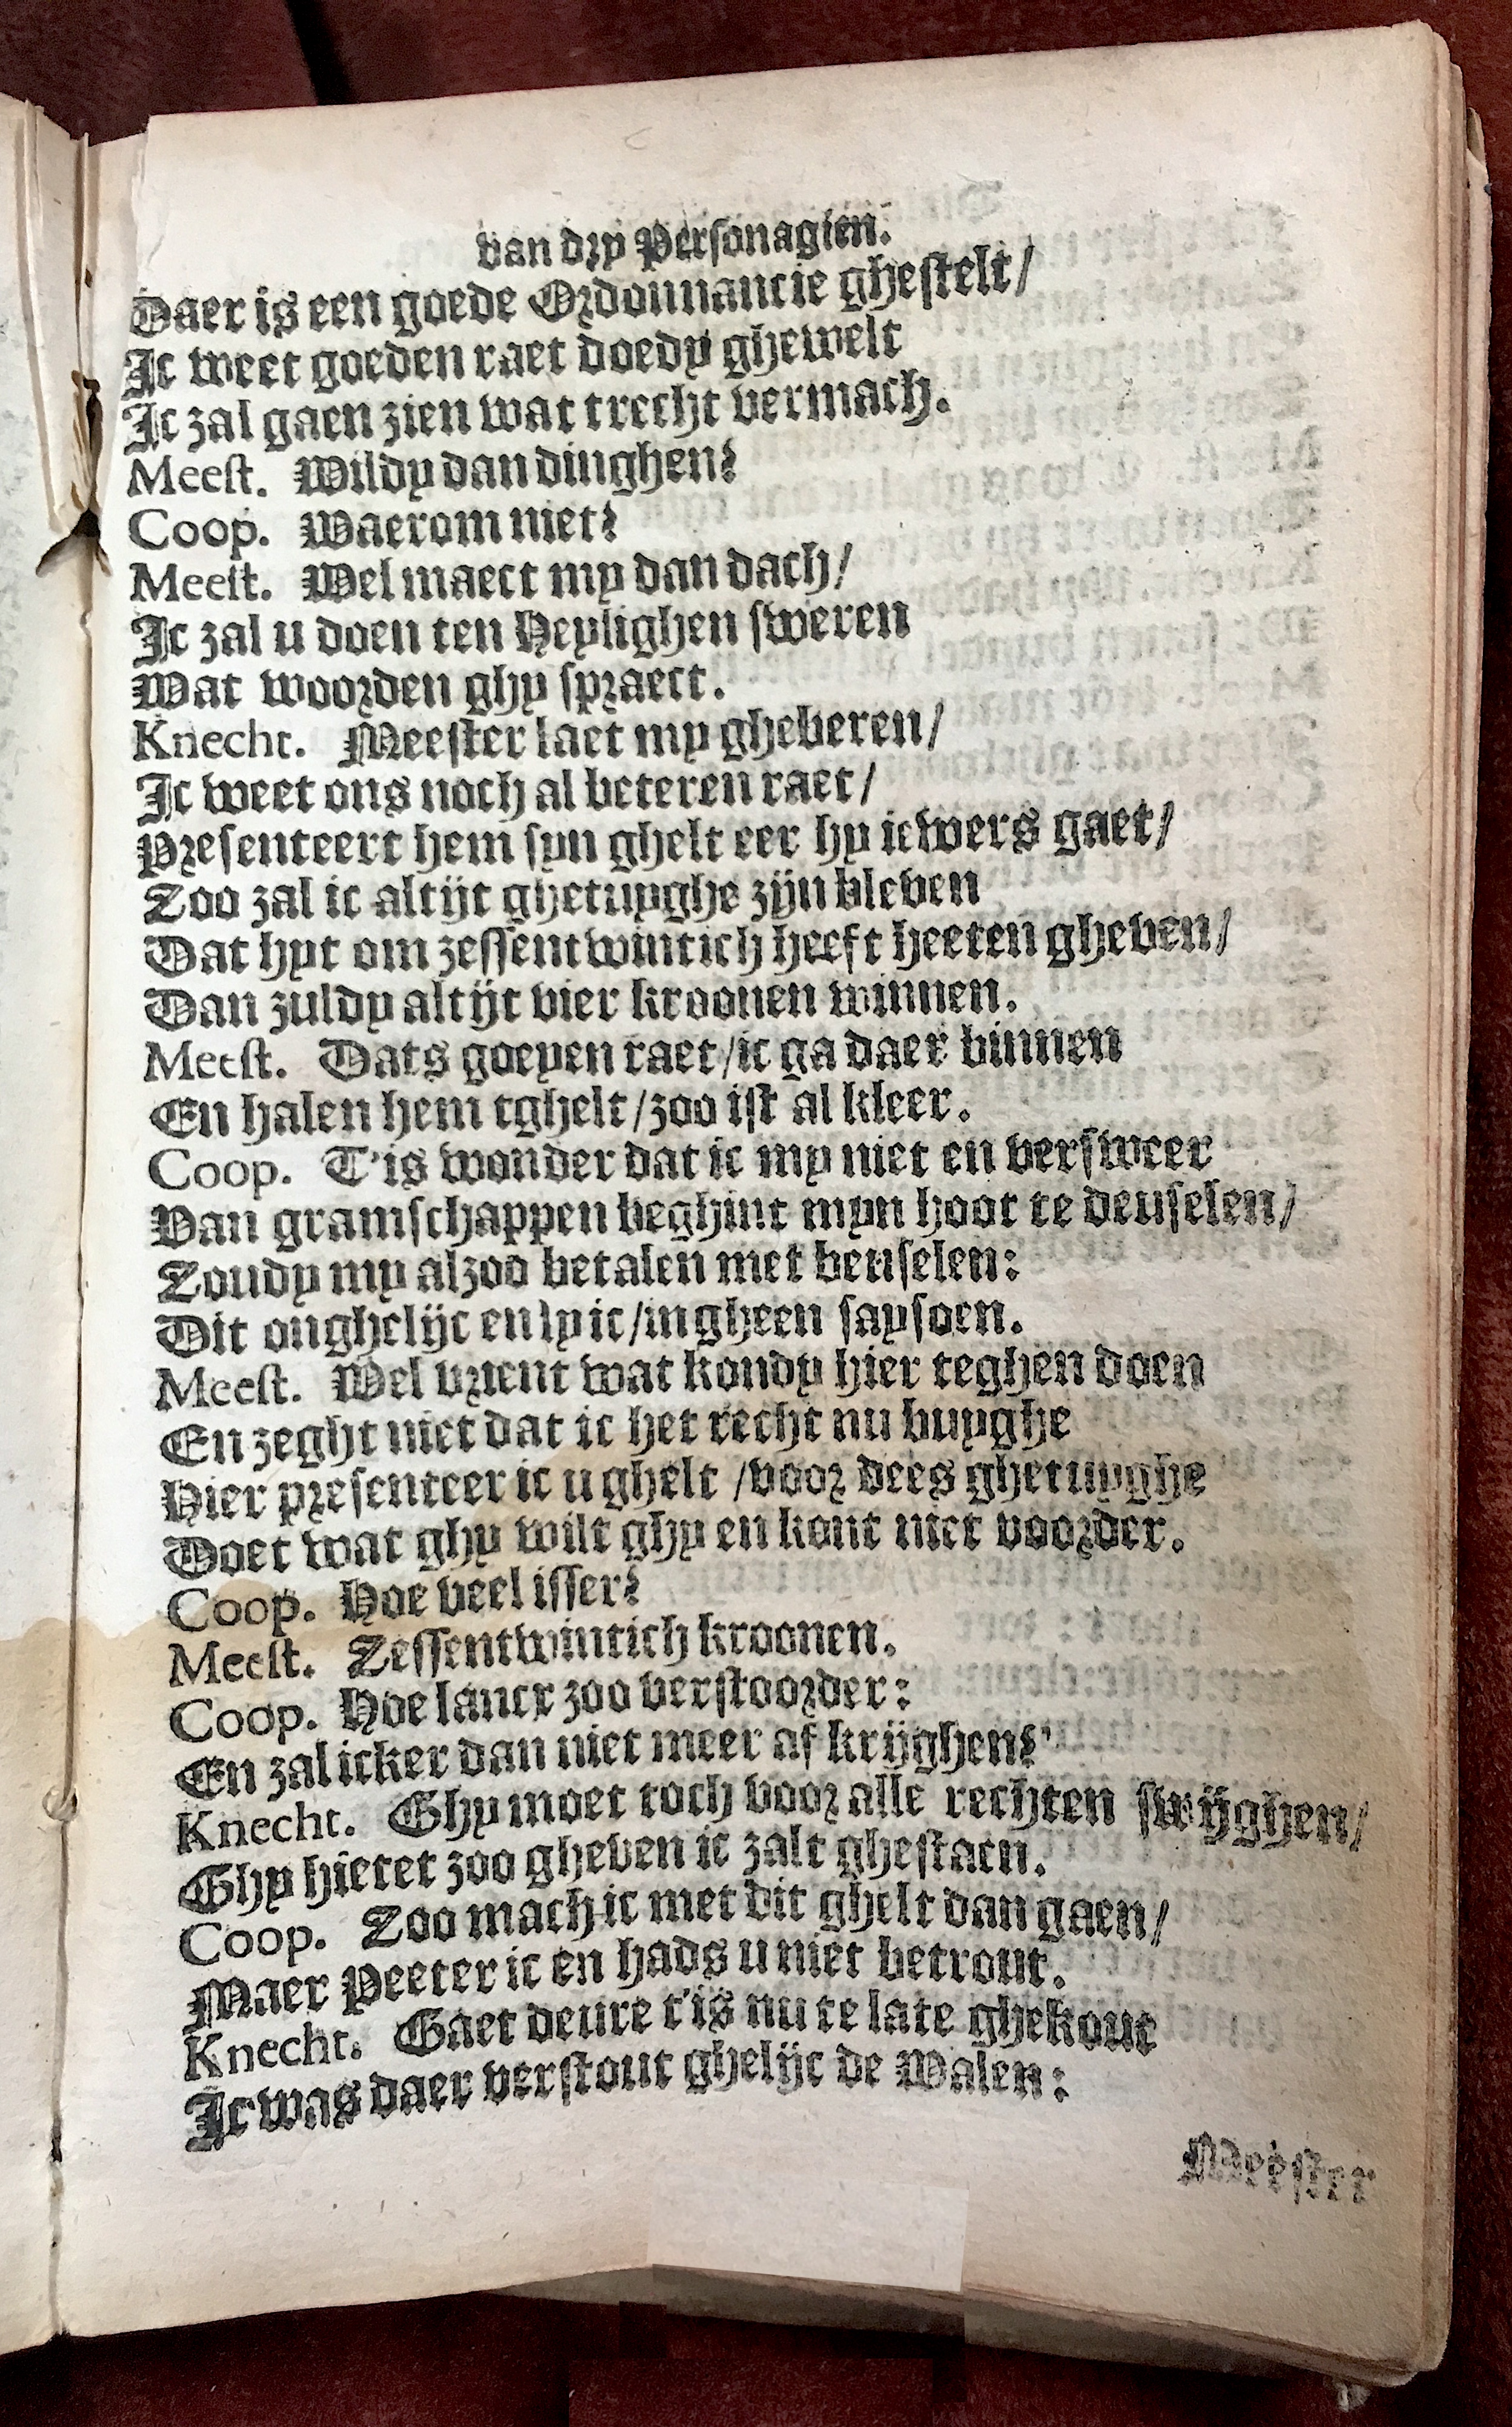 van dry Personagien.
Daer is een goede Ordonnancie ghestelt/
Ic weet goeden raet doedy ghewelt
Ic zal gaen zien wat trecht vermach.
Meest. Wildy dan dinghen?
Coop. Waerom niet?
Meest. Wel maect my dan dach/
Ic zal u doen ten Heylighen sweren
Wat woorden ghy spraect.
Knecht. Meester laet my gheberen/
Ic weet ons noch al beteren raet/
Presenteert hem syn ghelt eer hy iewers gaet/
Zoo zal ic altijt ghetuyghe zijn bleven
Dat hyt om zessentwintich heeft heeten gheven/
Dan zuldy altijt vier kroonen winnen.
Meest. Dats goeyen raet/ic ga daer binnen
En halen hem tghelt/zoo ist al kleer.
Coop. T'is wonder dat ic my niet en versweer
Van gramschappen beghint myn hoot te deuselen/
Zoudy my alzoo betalen met beuselen:
Dit onghelijc en lyic/in gheen saysoen.
Meest. Wel vrient wat kondy hier teghen doen
En zeght niet dat ic het recht nu buyghe
Hier presenteer ic u ghelt /voor dees ghetuyghe
Doet wat ghy wilt ghy en kont niet voorder.
Coop. Hoe veel isser?
Meest. Zessentwintich kroonen.
Coop. Hoe lancx zoo verstoorder:
En zal icker dan niet meer af krijghen?
Knecht. Ghy moet toch voor alle rechten swijghen/
Ghy hietet zoo gheven ic zalt ghestaen.
Coop. Zoo mach ic met dit ghelt dan gaen/
Maer Peeter ic en hads u niet betrout.
Knecht. Gaet deure t'is nu te late ghekout
Ic was daer verstout ghelijc de Walen:
Meester